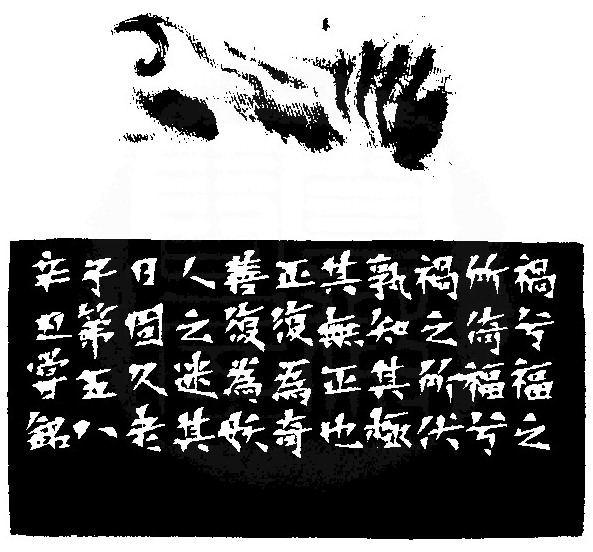 禍兮福之
所倚福兮
禍之所伏
孰知其極
其無正也
正復為奇
善復為妖
人之迷其
日固久老
子第五八
辛丑銘